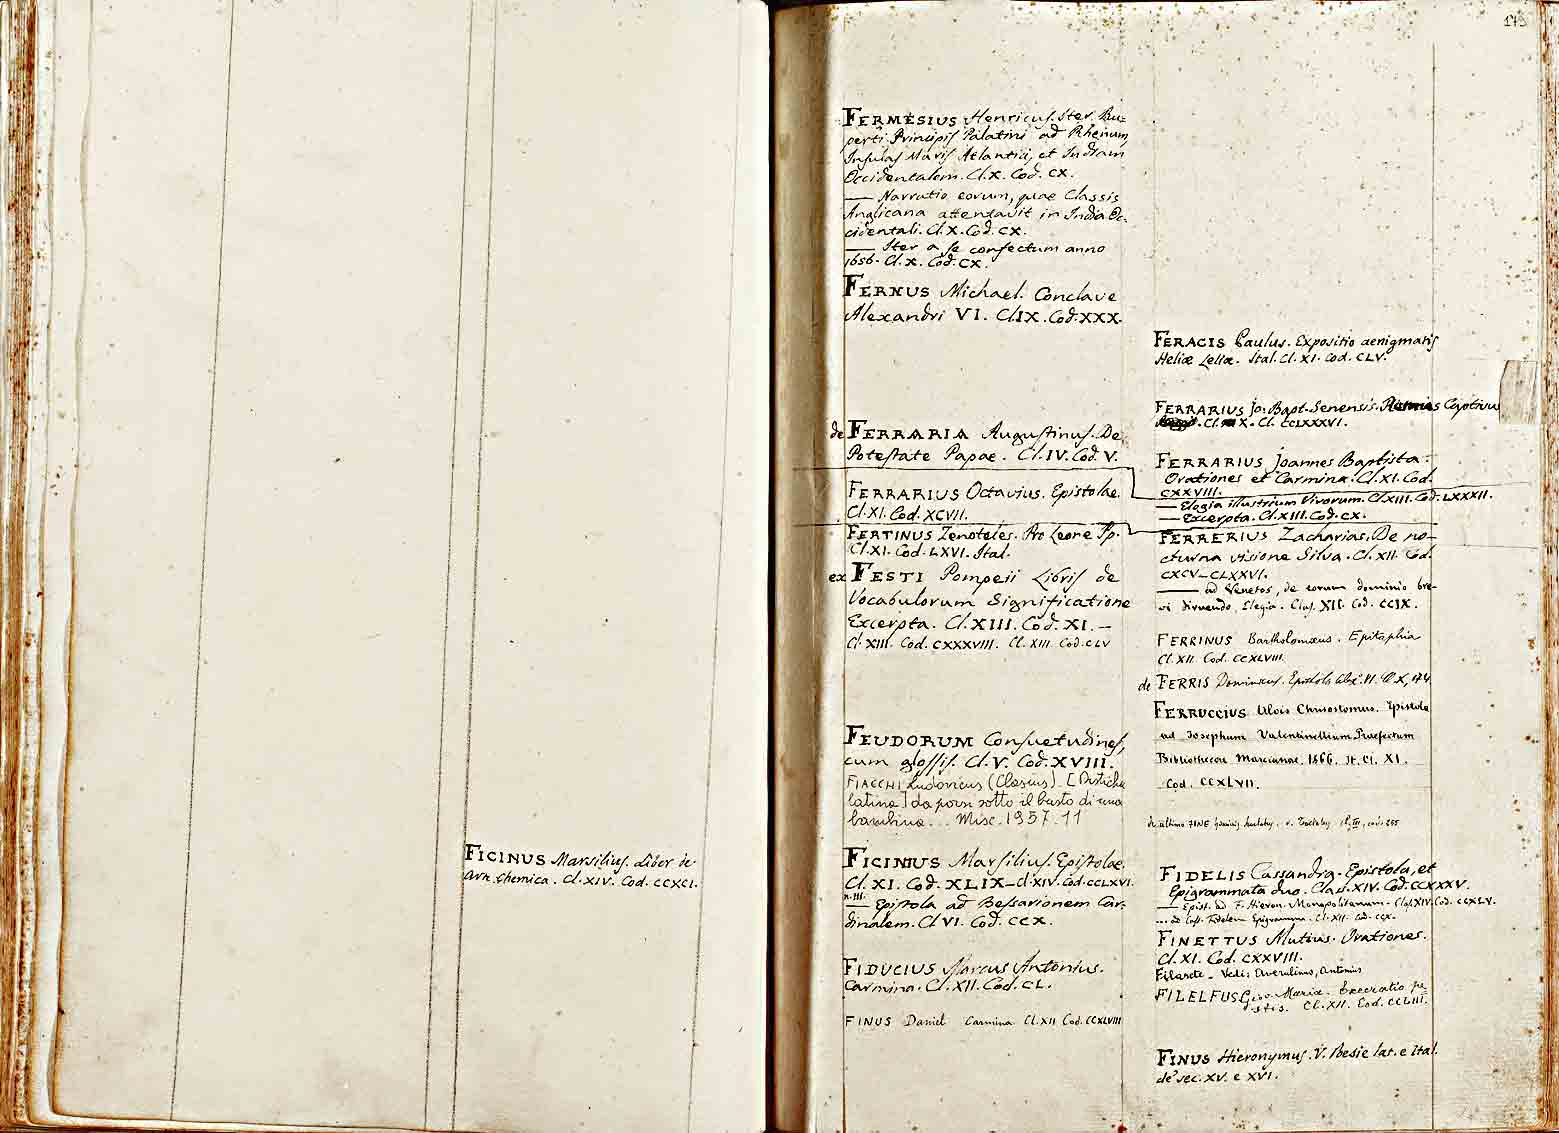 FICINUS Marsilius. Liber de
Arte Chemica. Cl. XIV. Cod. CCXCI.
173
FERMESIUS Henricus. Iter Ru=
perti Principis Palatini ad Rhenum,
Insulas Maris Atlantici, et Indiam
Occidentalem. Cl. X. Cod. CX.
— Narratio eorum, quae Classis
Anglicana attentavit in India Oc=
cidentali. Cl. X. Cod. CX.
— Iter a se confectum anno
1656. Cl. X. Cod. CX.
FERNUS Michael. Conclave
Alexandri VI. Cl. IX. Cod. XXX.
de FERRARIA Augustinus. De
Potestate Papae. Cl. IV. Cod. V.
FERRARIUS Octavius. Epistolae.
Cl. XI. Cod. XCVII.
FERTINUS Zenoteles. Pro Leone Pp.
Cl. XI. Cod. LXVI. Ital.
ex FESTI Pompeii Libris de
Vocabulorum Significatione
Excerpta. Cl. XIII. Cod. XI. —
Cl. XIII. Cod. CXXXVIII. Cl. XIII. Cod. CLV
FEUDORUM Consuetudines,
cum glossis. Cl. V. Cod. XVIII.
FIACCHI Ludovicus (Clasius). [Disticha
latina] da porsi sotto il busto di una
bambina... Misc. 1957.11
FICINUS Marsilius. Epistolae.
Cl. XI. Cod. XLIX — Cl. XIV. Cod. CCLXVI.
n. III.
— Epistola ad Bessarionem Car=
dinalem. Cl. VI. Cod. CCX.
FIDUCIUS Marcus Antonius.
Carmina. Cl. XII. Cod. CL.
FINUS Daniel Carmina Cl. XII Cod. CCXLVIII
FERACIS Paulus. Expositio aenigmatis
Heliæ Leliæ. Ital. Cl. XI. Cod. CLV.
FERRARIUS Jo: Bapt. Senensis. Captivus
Cl. X. Cl. CCLXXXVI.
FERRARIUS Joannes Baptista.
Orationes et Carmina. Cl. XI. Cod.
CXXVIII.
— Elogia illustrium Virorum. Cl. XIII. Cod. LXXXII.
— Excerpta. Cl. XIII. Cod. CX.
FERRERIUS Zacharias. De no-
cturna visione Silva. Cl. XII. Cod.
CXCV — CLXXVI.
— ad Venetos, de eorum dominio bre-
vi diruendo, Elegia. Clas. XII. Cod. CCIX.
FERRINUS Bartholomæus. Epitaphia
Cl. XII. Cod. CCXLVIII.
de FERRIS Dominicus. Epistola X, 174.
FERRUCCIUS Alois Chrisostomus. Epistola
ad Josephum Valentinellium Praefectum
Bibliothecae Marcianae. 1866. It. Cl. XI.
Cod. CCXLVII.
de ultimo FINE
FIDELIS Cassandra. Epistola, et
Epigrammata duo. Clas. XIV. Cod. CCXXXV.
— Epist. ad F. Hieron. Monopolitanum. Clas. XIV. Cod. CCXLV.
... ad Cass. Fidelem Epigramma. Cl. XII. Cod. CCX.
FINETTUS Mutius. Orationes.
Cl. XI. Cod. CXXVIII.
Filarete - Vedi: Averulinus, Antonius
FILELFUS Giov. Maria. Execratio pe=
stis. Cl. XII. Cod. CCLIII.
FINUS Hieronymus. V. Poesie lat. e Ital.
de' sec. XV. e XVI.